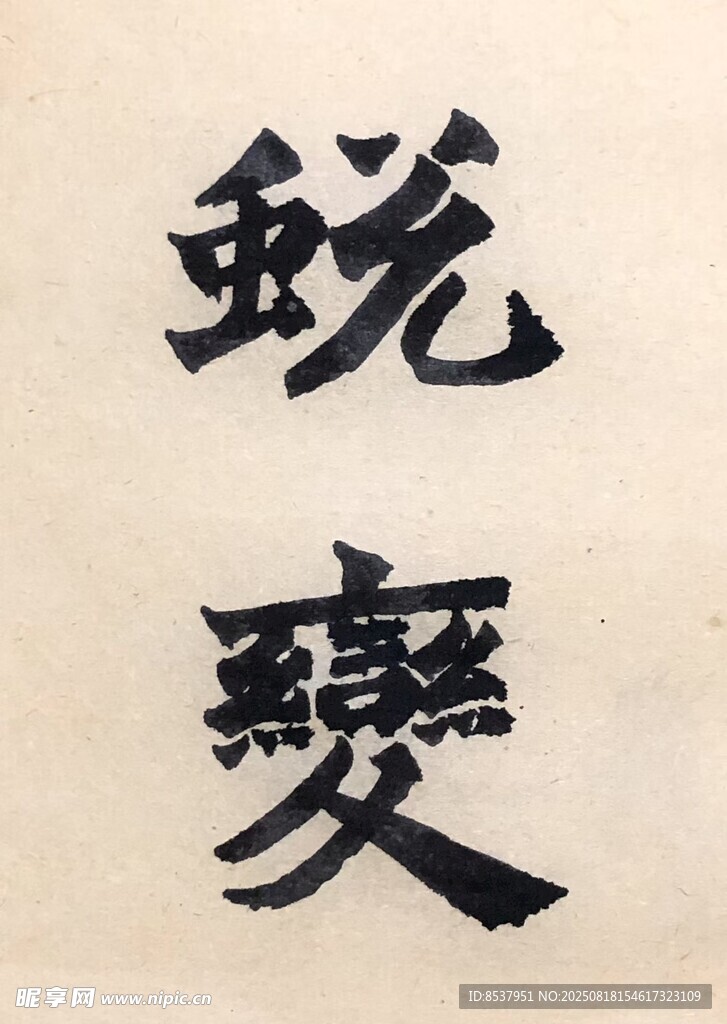 蜕
變
昵享网 www.nipic.cn
ID:8537951 NO:20250818154617323109